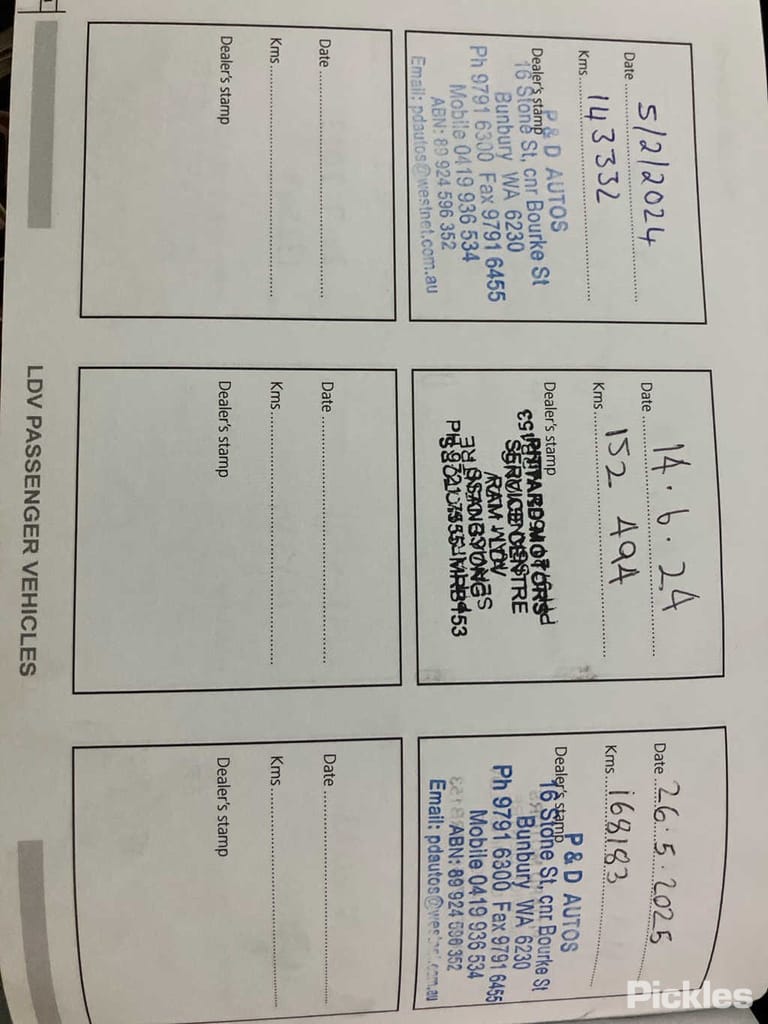 Date 5/2/2024
Kms 143332
Dealer's stamp
P & D AUTOS
16 Stone St, cnr Bourke St
Bunbury WA 6230
Ph 9791 6300 Fax 9791 6455
Mobile 0419 936 534
ABN: 89 924 596 352
Email: pdautos@westnet.com.au
Date 14.6.24
Kms 152 494
Dealer's stamp
MOTORS
SERVICE CENTRE
RAM LDV
SSANGYONG
MRB153
Date 26.5.2025
Kms 168183
Dealer's stamp
P & D AUTOS
16 Stone St, cnr Bourke St
Bunbury WA 6230
Ph 9791 6300 Fax 9791 6455
Mobile 0419 936 534
ABN: 89 924 596 352
Email: pdautos@westnet.com.au
Date
Kms
Dealer's stamp
Date
Kms
Dealer's stamp
Date
Kms
Dealer's stamp
LDV PASSENGER VEHICLES
Pickles